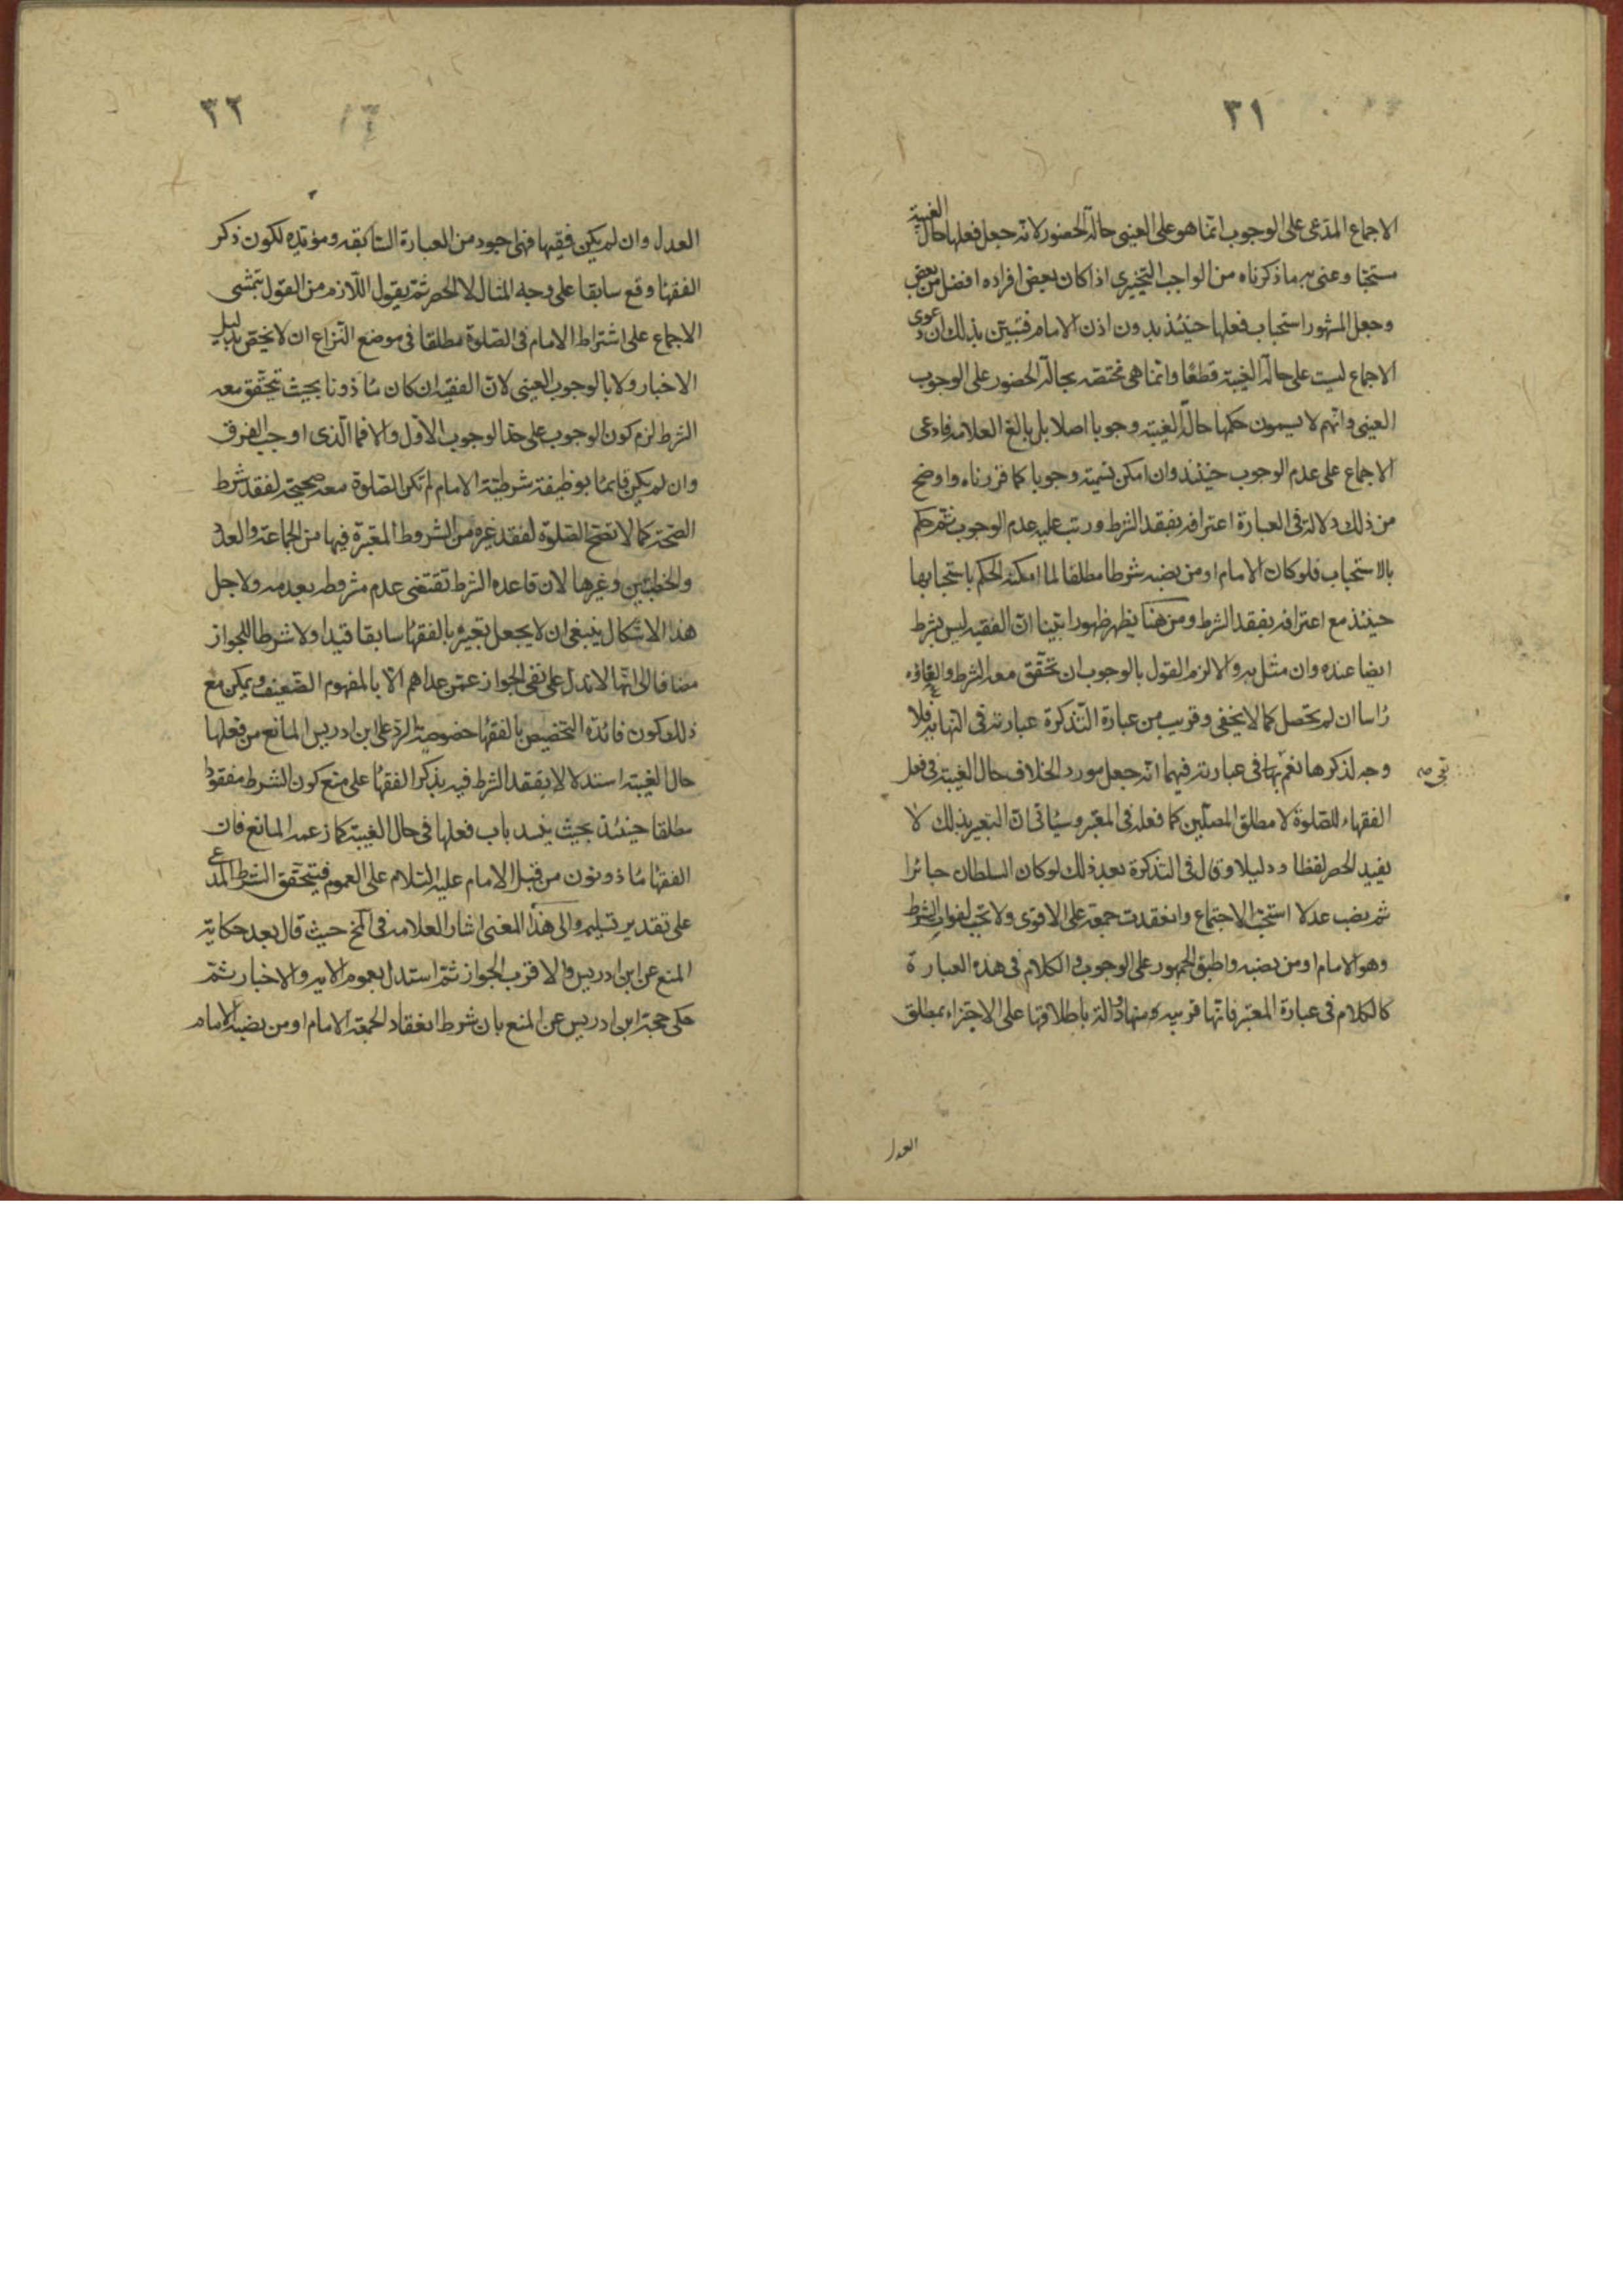 ٣١
الاجماع المدّعى على الوجوب انّما هو على العينى حالة الحضور لانه جعل فعلها حال الغيبة
مستحبّا وعنى به ما ذكرناه من الواجب التخييرى اذا كان بعض افراده افضل من بعض
وجعل المشهور استحباب فعلها حينئذ بدون اذن الامام فتبيّن بذلك ان دعوى
الاجماع ليست على حالة الغيبة قطعًا وانّما هى مختصّه بحالة الحضور على الوجوب
العينى وانّهم لا يسمون حكمها حالة الغيبة وجوبا اصلا بل بالغ العلامه فادعى
الاجماع على عدم الوجوب حينئذ وان امكن تسميته وجوبا كما قررناه واوضح
من ذلك دلالة فى العبارة اعترافه بفقد الشرط ورتب عليه عدم الوجوب ثمّ حكم
بالاستحباب فلو كان الامام او من نصبه شرطا مطلقا لما امكنه الحكم باستحبابها
حينئذ مع اعترافه بفقد الشرط ومن هنا يظهر ظهورا بيّنا انّ الفقيه ليس بشرط
ايضا عنده وان مثّل به والا لزم القول بالوجوب ان تحقّق معه الشرط والغاؤه
رأسا ان لم يحصل كما لا يخفى وقريب من عبارة التذكرة عبارته فى النهاية فلا
وجه لذكرها نعم بقى فى عبارته فيهما انّه جعل مورد الخلاف حال الغيبة فى فعل
الفقهاء للصّلوة لا مطلق المصلّين كما فعله فى المعتبر وسيأتى انّ التعبير بذلك لا
يفيد الحصر لفظا ودليلا وقال فى التذكرة بعد ذلك لو كان السلطان جائرا
ثم نصب عدلا استحبّ الاجتماع وانعقدت جمعة على الاقوى ولا تجب لفوات الشرط
وهو الامام او من نصبه واطبق الجمهور على الوجوب والكلام فى هذه العبارة
كالكلام فى عبارة المعتبر فانّها قريبه منها ودالّة باطلاقها على الاجتزاء بمطلق
العدل
٣٢
العدل وان لم يكن فقيها فهى اجود من العبارة السّابقه ومؤيّده لكون ذكر
الفقهاء وقع سابقا على وجه المثال لا الحصر ثمّ يقول اللّازم من القول بتمشى
الاجماع على اشتراط الامام فى الصّلوة مطلقا فى موضع النّزاع ان لا يختصّ بدليل
الاخبار ولا بالوجوب العينى لانّ الفقيه ان كان مأذونا بحيث تتحقّق معه
الشرط لزم كون الوجوب على حدّ الوجوب الاوّل والا فما الّذى اوجب الفرق
وان لم يكن قايمًا بوظيفة شرطيّة الامام لم تكن الصّلوة معه صحيحة لفقد شرط
الصّحّة كما لا تصحّ الصّلوة لفقد غيره من الشروط المعتبرة فيها من الجماعة والعدد
والخطبتين وغيرها لان قاعده الشرط تقتضى عدم مشروطه بعدمه ولاجل
هذا الاشكال ينبغى ان لا يجعل تعبيره بالفقهاء سابقا قيدا ولا شرطا للجواز
مضافا الى انّها لا تدلّ على نفى الجواز عمّن عداهم الّا بالمفهوم الضّعيف ويمكن مع
ذلك كون فائدة التخصيص بالفقهاء خصوصيّة الردّ على ابن ادريس المانع من فعلها
حال الغيبة استدلالا بفقد الشرط فيه بذكر الفقهاء على منع كون الشرط مفقودا
مطلقا حينئذ بحيث ينسد باب فعلها فى حال الغيبة كما زعمه المانع فان
الفقهاء مأذونون من قبل الامام عليه السّلام على العموم فيتحقّق الشرط المدّعى
على تقدير تسليمه والى هذا المعنى اشار العلامه فى المخ حيث قال بعد حكاية
المنع عن ابن ادريس والاقرب الجواز ثمّ استدلّ بعموم الايه والاخبار ثمّ
حكى حجة ابن ادريس عن المنع بان شرط انعقاد الجمعة الامام او من نصبه الامام